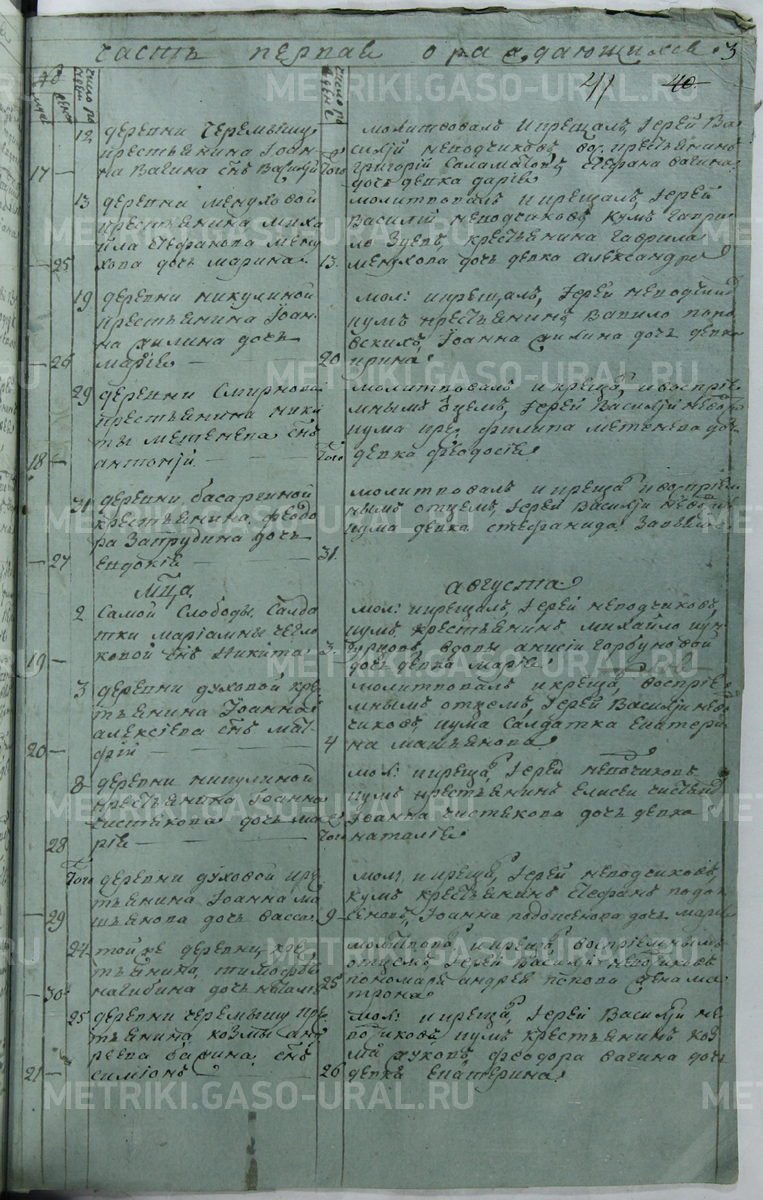 часть первая о раждающихся
3
41 40
12 деревни Черемвищу
крестьянина Іоан-
на Вагина снъ Василий
17
Того
молитвовалъ и крещалъ, Іерей Ва-
силій неподчиковъ, вос: крестьянинъ
григорій Саламатовъ, Стефана вагина
дочь девка дарiя
13 деревни менуховой
крестьянина миха-
йла Стефанова Мену
хова дочь марина
25
13
молитвовалъ и крещалъ, Іерей
Василій неподчиковъ, кумъ гаври-
ло Зуевъ, крестьянина гаврила
менухова дочь девка александра
19 деревни никулиной
крестьянина Іоан-
на дочь
марiя
26
20
мол: и крещалъ, Іерей неподчиков
кумъ крестьянинъ Вавило
Іоанна дочь девка
ирина
29 деревни Смирнова
крестьянина ники
ты метенева снъ
антонiй
18
Того
молитвовалъ и креща, и воспріе
мнымъ Отцемъ, Іерей Василій непод
кума кре: филипа метенева доч
девка феодосiя
31 деревни басаргиной
крестьянина феодо
ра Запрудина дочь
Евдокiя
27
31
молитвовалъ и креща и воспріем
нымъ отцемъ, Іерей Василій непод
кума девка стефанида
Мца августа
2 Самой Слободы, Салда
тки марiамны чегло
ковой снъ Никита
19
3
мол: и крещалъ, Іерей неподчиковъ
кумъ крестьянинъ михайло кун
гурцовъ, вдовы анисiи горбуновой
дочь девка марiя
3 деревни духовой кре
стьянина Іоанна
алексiева снъ мат
фiй
20
4
молитвовалъ и креща, воспрiе
мнымъ отцемъ, Іерей Василiй непо
чиковъ, кума Салдатка Екатери
на машьянова
8 деревни никулиной
крестьянина Іоанна
чистякова дочь ма
рiя
28
Того
мол: и креща, Іерей непочиковъ
кумъ крестьянинъ Елисей чистяк
Іоанна чистякова дочь девка
наталiя
Того деревни духовой кре
стьянина Іоанна ма
шьянова дочь васса
29
9
мол: и креща, Іерей неподчиковъ,
кумъ крестьянинъ Стефанъ подок
сеновъ, Іоанна подоксенова дочь марiя
24 той же деревни, кре
стьянина, тимофея
нагибина дочь наталiя
30
25
молитвова и креща, воспрiемнымъ
отцемъ, Іерей Василiй неподчиковъ
пономаря андрея попова жена ма
трона
25 деревни черемвищу кре
стьянина козмы анд
реева вагина, снъ
симiонъ
21
26
мол: и креща, Іерей Василiй не
потчиковъ кумъ крестьянинъ коз
ма жуковъ, феодора вагина доч
девка Екатерина